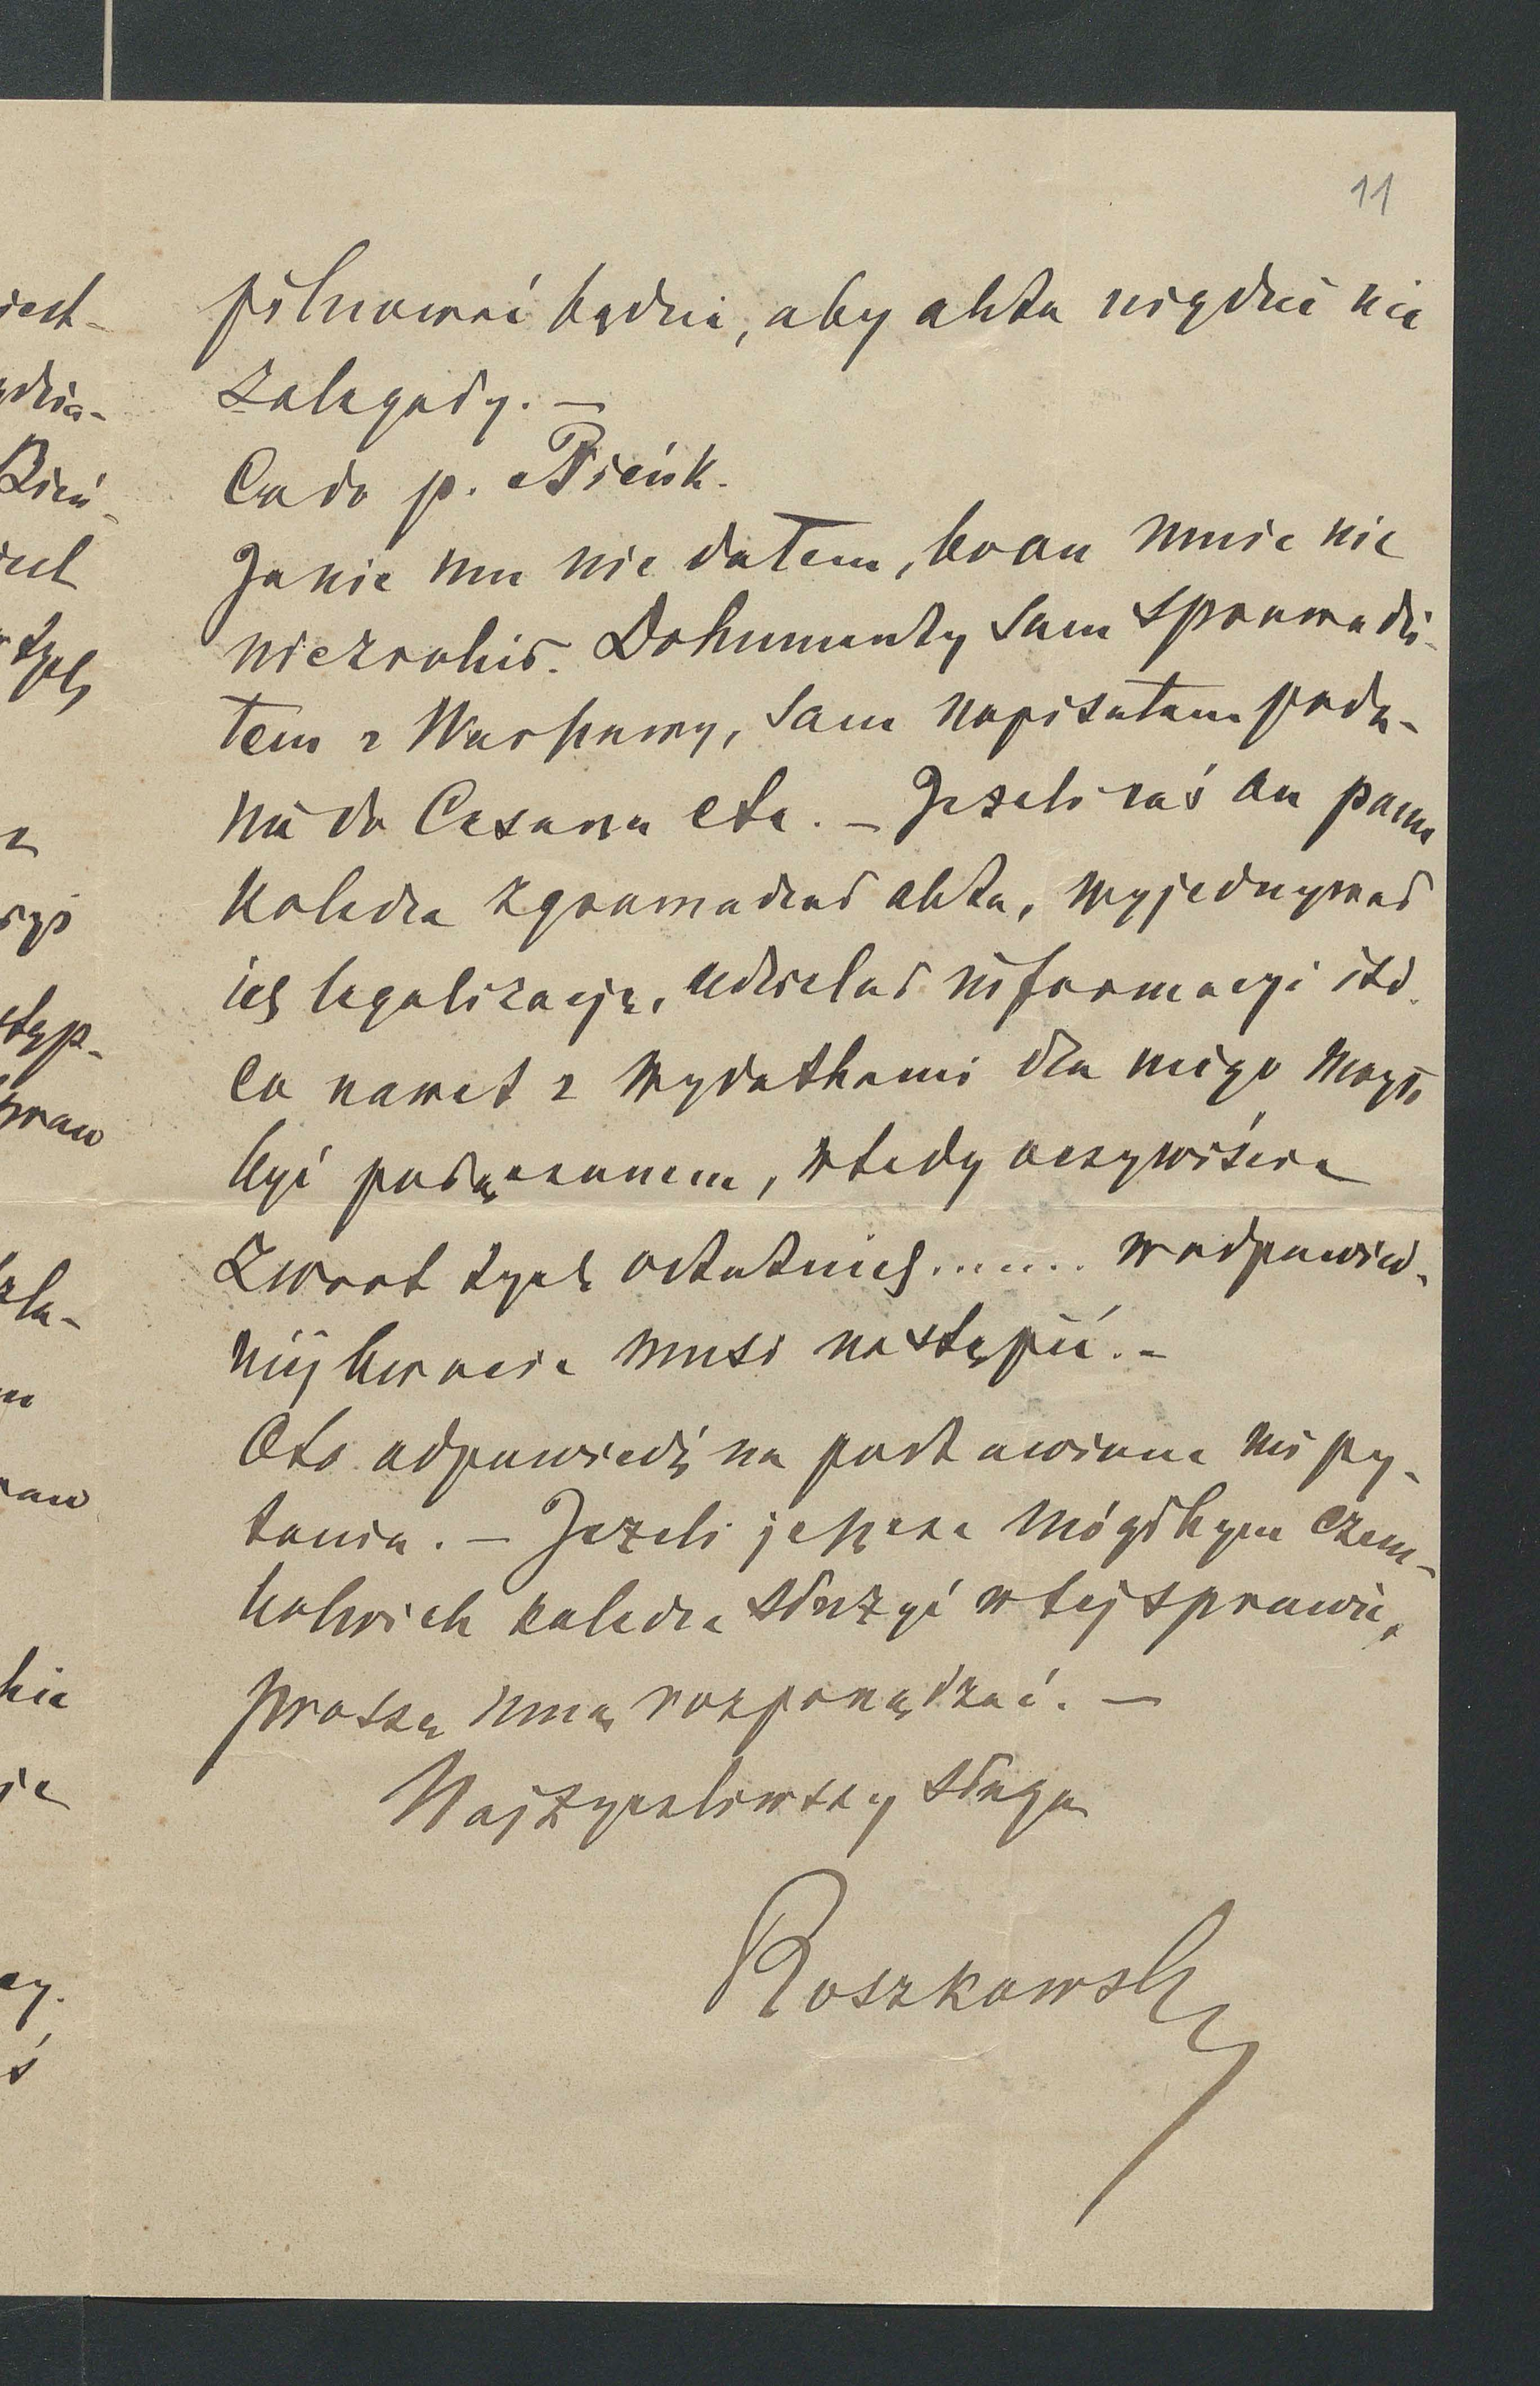 11
pilnować będzie, aby akta nigdzie nie
zalegały. –
Co do p. Bieńk.
Ja nic mu nie dałem, bo on mnie nic
nie zrobił. Dokumenty sam sprowadzi-
łem z Warszawy, sam napisałem poda-
nie do Cesarza etc. – Jeżeli zaś on panu
koledze zgromadzał akta, wyjednywał
ich legalizacje, udzielał informacyi itd.
co nawet z wydatkami dla niego mogło
być połączonem, wtedy oczywiście
zwrot tych ostatnich....... w odpowied-
niej kwocie musi nastąpić. –
Oto odpowiedź na postawione mi py-
tania. – Jeżeli jeszcze mógłbym czem-
kolwiek koledze służyć w tej sprawie,
proszę mną rozporządzać. –
Najżyczliwszy sługa
Roszkowski